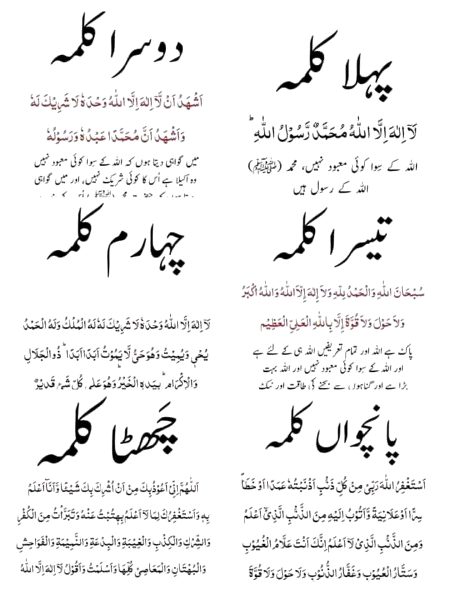 پہلا کلمہ
لَآ اِلٰهَ اِلَّا اللّٰهُ مُحَمَّدٌ رَّسُوْلُ اللّٰهِ ؕ
اللہ کے سِوا کوئی معبود نہیں، محمد (ﷺ)
اللہ کے رسول ہیں
دوسرا کلمہ
اَشْهَدُ اَنْ لَّآ اِلٰهَ اِلَّا اللّٰهُ وَحْدَهٗ لَا شَرِيْكَ لَهٗ
وَاَشْهَدُ اَنَّ مُحَمَّدًا عَبْدُهٗ وَرَسُوْلُهٗ
میں گواہی دیتا ہوں کہ اللہ کے سِوا کوئی معبود نہیں
وہ اکیلا ہے اُس کا کوئی شریک نہیں، اور میں گواہی
تیسرا کلمہ
سُبْحَانَ اللّٰهِ وَالْحَمْدُ لِلّٰهِ وَلَآ اِلٰهَ اِلَّا اللّٰهُ وَاللّٰهُ اَكْبَرُ
وَلَا حَوْلَ وَلَا قُوَّةَ اِلَّا بِاللّٰهِ الْعَلِيِّ الْعَظِيْمِ
پاک ہے اللہ اور تمام تعریفیں اللہ ہی کے لئے ہے
اور اللہ کے سِوا کوئی معبود نہیں اور اللہ بہت
بڑا ہے اور گناہوں سے بچنے کی طاقت اور نیک
چہارم کلمہ
لَآ اِلٰهَ اِلَّا اللّٰهُ وَحْدَهٗ لَا شَرِيْكَ لَهٗ لَهُ الْمُلْكُ وَلَهُ الْحَمْدُ
يُحْيٖ وَيُمِيْتُ وَهُوَ حَيٌّ لَّا يَمُوْتُ اَبَدًا اَبَدًا ؕ ذُو الْجَلَالِ
وَالْاِكْرَامِ ؕ بِيَدِهِ الْخَيْرُ ؕ وَهُوَ عَلٰى كُلِّ شَیْءٍ قَدِيْرٌ ؕ
پانچواں کلمہ
اَسْتَغْفِرُ اللّٰهَ رَبِّیْ مِنْ كُلِّ ذَنْۢبٍ اَذْنَبْتُهٗ عَمَدًا اَوْ خَطَأً
سِرًّا اَوْ عَلَانِيَةً وَّاَتُوْبُ اِلَيْهِ مِنَ الذَّنْۢبِ الَّذِیْٓ اَعْلَمُ
وَمِنَ الذَّنْۢبِ الَّذِیْ لَآ اَعْلَمُ اِنَّكَ اَنْتَ عَلَّامُ الْغُيُوْبِ
وَسَتَّارُ الْعُيُوْبِ وَغَفَّارُ الذُّنُوْبِ وَلَا حَوْلَ وَلَا قُوَّةَ
چھٹا کلمہ
اَللّٰهُمَّ اِنِّیْٓ اَعُوْذُ بِكَ مِنْ اَنْ اُشْرِكَ بِكَ شَيْئًا وَّاَنَا اَعْلَمُ
بِهٖ وَاَسْتَغْفِرُكَ لِمَا لَآ اَعْلَمُ بِهٖ تُبْتُ عَنْهُ وَتَبَرَّأْتُ مِنَ الْكُفْرِ
وَالشِّرْكِ وَالْكِذْبِ وَالْغِيْبَةِ وَالْبِدْعَةِ وَالنَّمِيْمَةِ وَالْفَوَاحِشِ
وَالْبُهْتَانِ وَالْمَعَاصِیْ كُلِّهَا وَاَسْلَمْتُ وَاَقُوْلُ لَآ اِلٰهَ اِلَّا اللّٰهُ